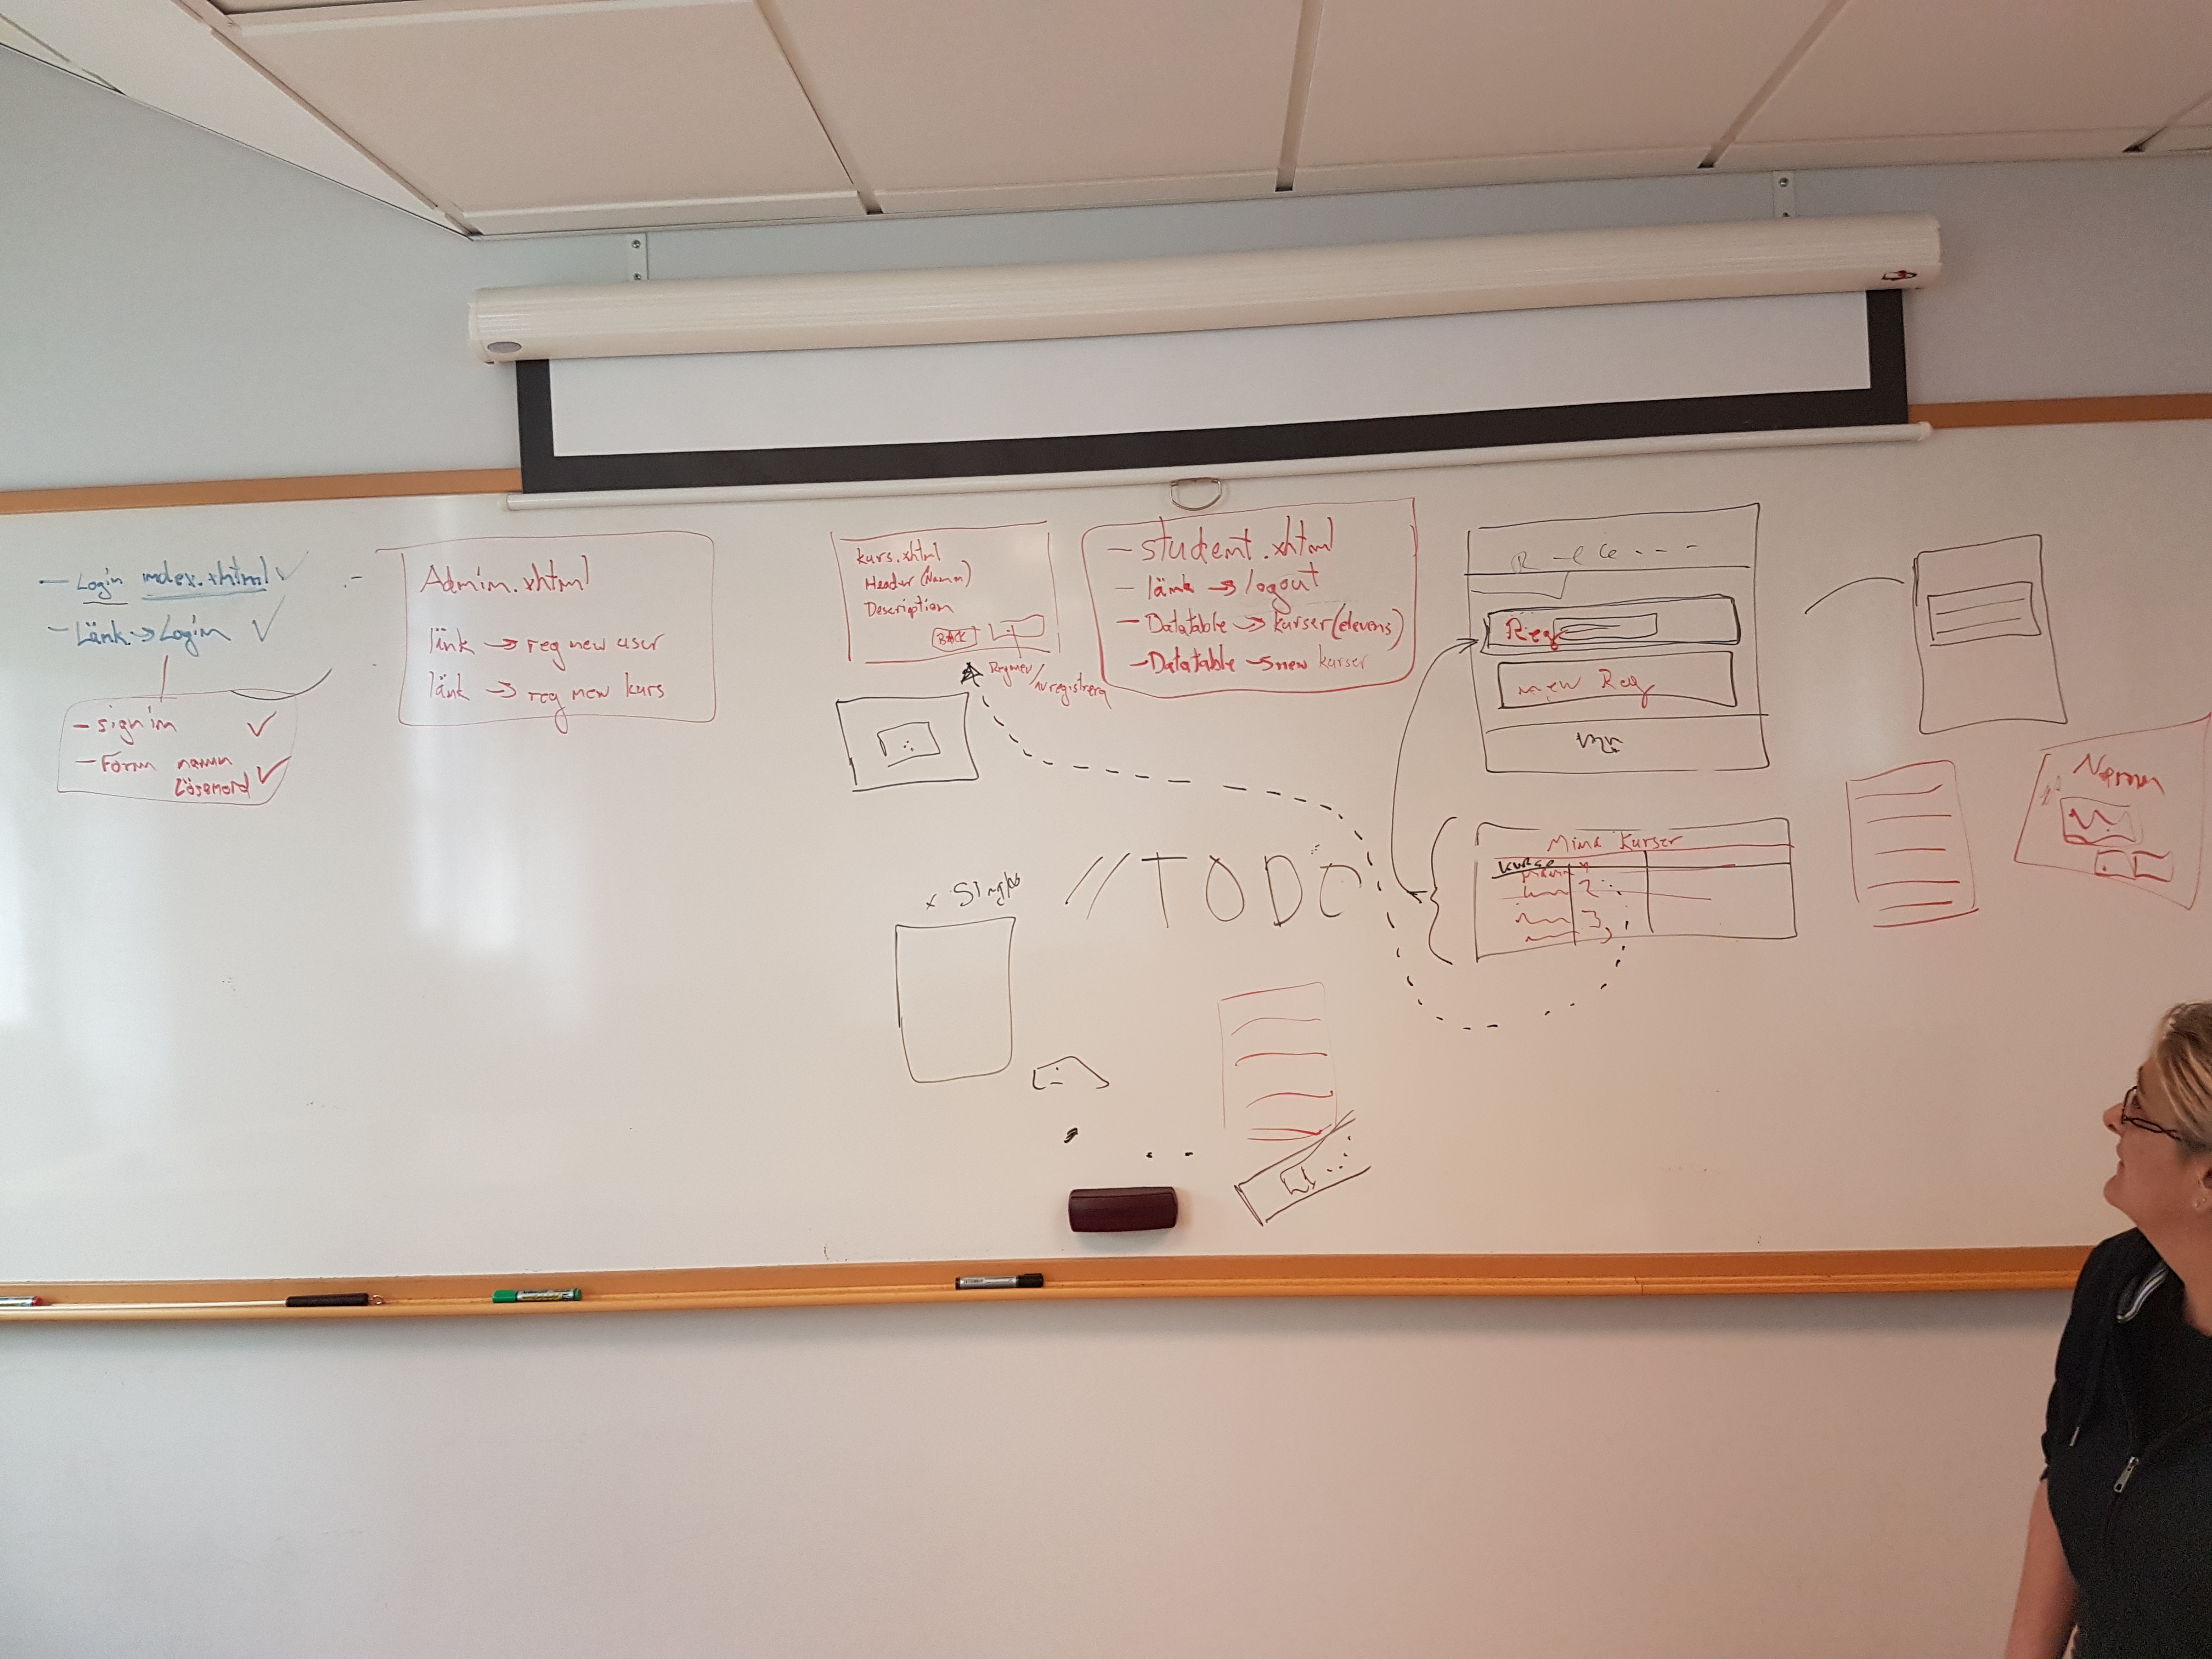 – Login index.xhtml ✓
– Länk → Login ✓
– sign in ✓
– Form namn
lösenord ✓
Admin.xhtml
länk → reg new user
länk → reg new kurs
kurs.xhtml
Header (Namn)
Description
BACK
Reg new /
avregistrera
– student.xhtml
– länk → logout
– Datatable → kurser (elevens)
– Datatable → new kurser
Reg
new Reg
// TODO
Mina kurser
kurse
namn
2
3
Namn